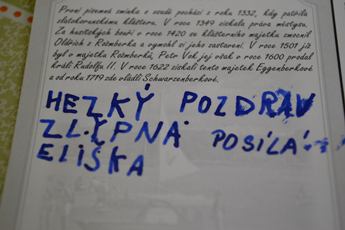 První písemná zmínka o osadě pochází z roku 1332, kdy patřila
zlatokorunskému klášteru. V roce 1349 získala práva městysu.
Za husitských bouří v roce 1420 se klášterního majetku zmocnil
Oldřich z Rožmberka a vymohl si jeho zastavení. V roce 1501 již
byl v majetku Rožmberků, Petr Vok jej však v roce 1600 prodal
králi Rudolfu II. V roce 1622 získali tento majetek Eggenberkové
a od roku 1719 zde vládli Schwarzenberkové.
HEZKÝ POZDRAV
Z LÍPNA POSÍLÁ
ELIŠKA